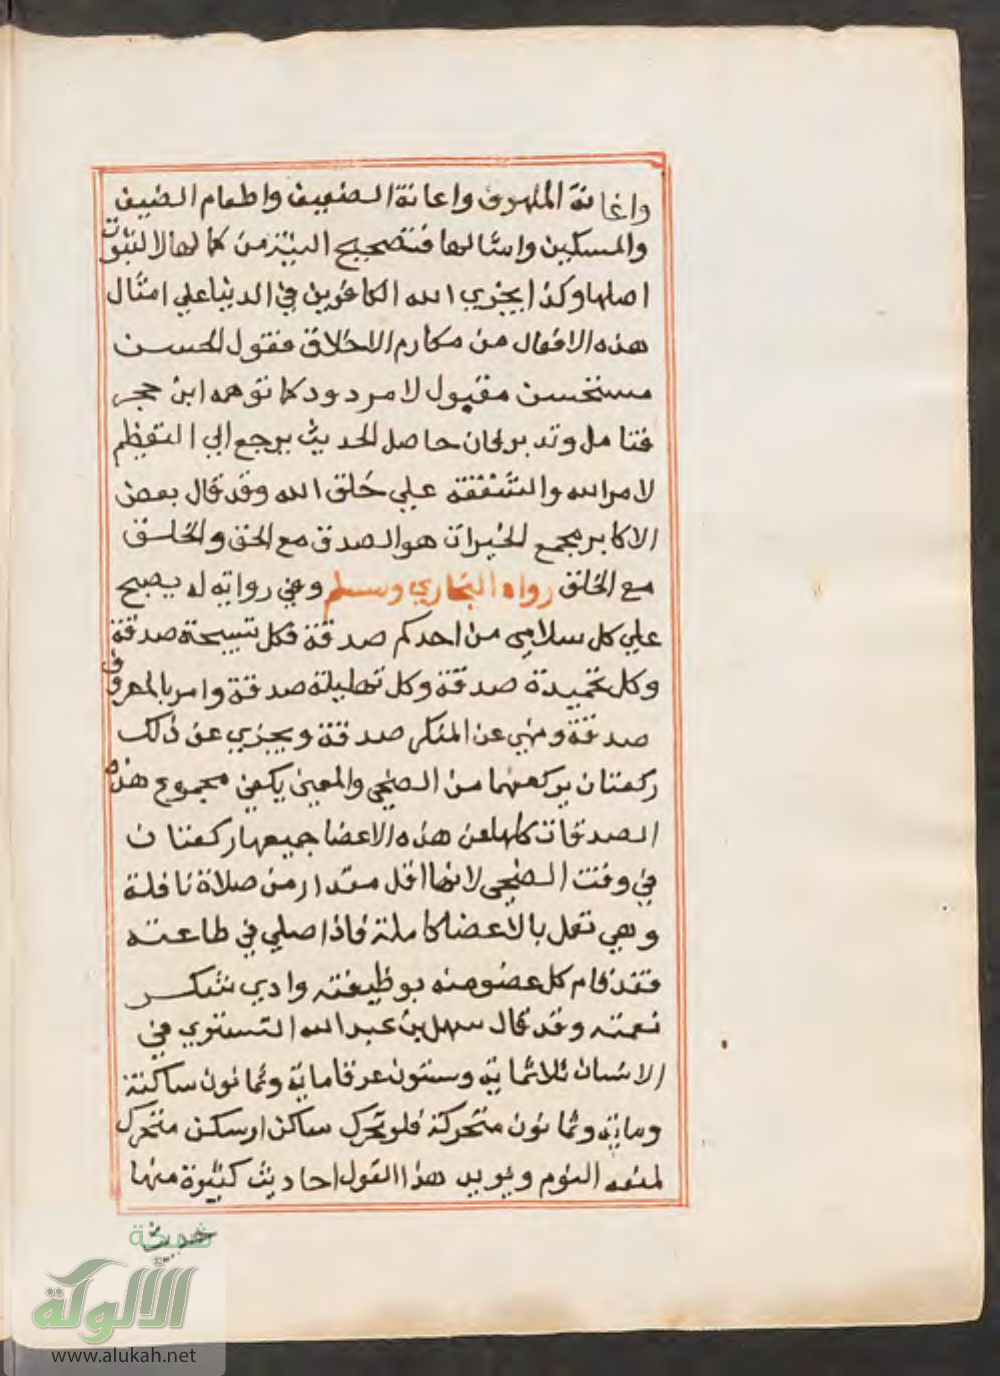 واغاثة الملهوف واعانة الضعيف واطعام الضيف
والمسكين وامثالها فتصحيح النية من كمالها لا لثبوت
اصلها وكذا يجزي الله الكافرين في الدنيا علي امثال
هذه الافعال من مكارم الاخلاق فقول الحسن
مستحسن مقبول لا مردود كما توهمه ابن حجر
فتامل وتدبر فان حاصل الحديث يرجع الي التعظيم
لامر الله والشفقة علي خلق الله وقد قال بعض
الاكابر مجمع الخيرات هو الصدق مع الحق والخلق
مع الخلق رواه البخاري ومسلم وفي رواية له يصبح
علي كل سلامي من احدكم صدقة فكل تسبيحة صدقة
وكل تحميدة صدقة وكل تهليلة صدقة وامر بالمعروف
صدقة ونهي عن المنكر صدقة ويجزي عن ذلك
ركعتان يركعهما من الضحي والمعني يكفي مجموع هذه
الصدقات كلها عن هذه الاعضا جميعها ركعتان
في وقت الضحي لانها اقل مقدار من صلاة نافلة
وهي تعمل بالاعضا كاملة فاذا صلي في طاعته
فقد قام كل عضو منه بوظيفته وادي شكر
نعمته وقد قال سهل بن عبد الله التستري في
الانسان ثلاثماية وستون عرقا ماية وثمانون ساكنة
وماية وثمانون متحركة فلو تحرك ساكن او سكن متحرك
لمنعه النوم ويويد هذا القول احاديث كثيرة منها
حديث
شبكة
الألوكة
www.alukah.net